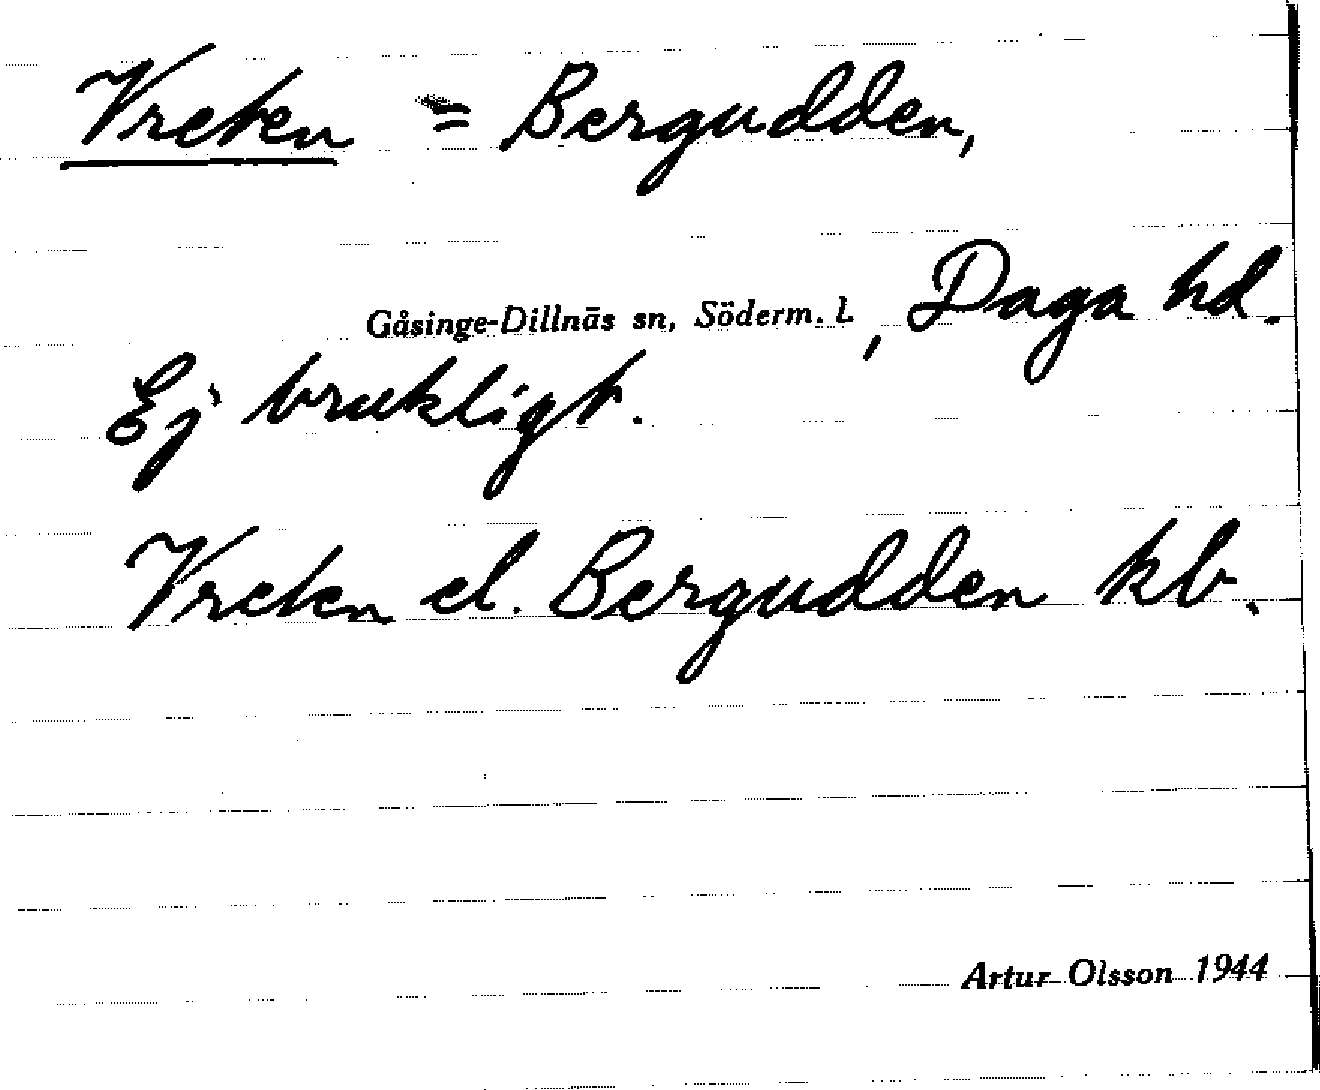 Vreten = Bergudden,
Gåsinge-Dillnäs sn, Söderm. l., Daga hd.
Ej brukligt.
Vreten el. Bergudden kb.
Artur Olsson 1944